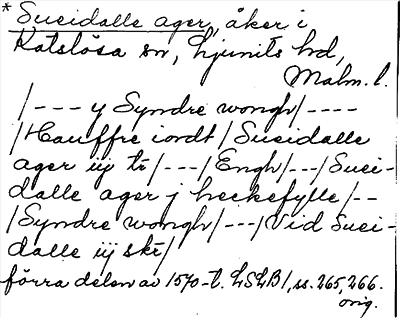 * Sueidalle ager, åker i
Katslösa sn, Ljunits hd,
Malm. l.
/--- y Syndre wongh/----
/Hauffre iordt/Sueidalle
ager iij tr/---/Engh/---/Suei-
dalle ager j heckefylle/--
/Syndre wongh/---/Vid Suei-
dalle iij skr/
förra delen av 1570-t. LSLB1, ss. 265, 266.
orig.